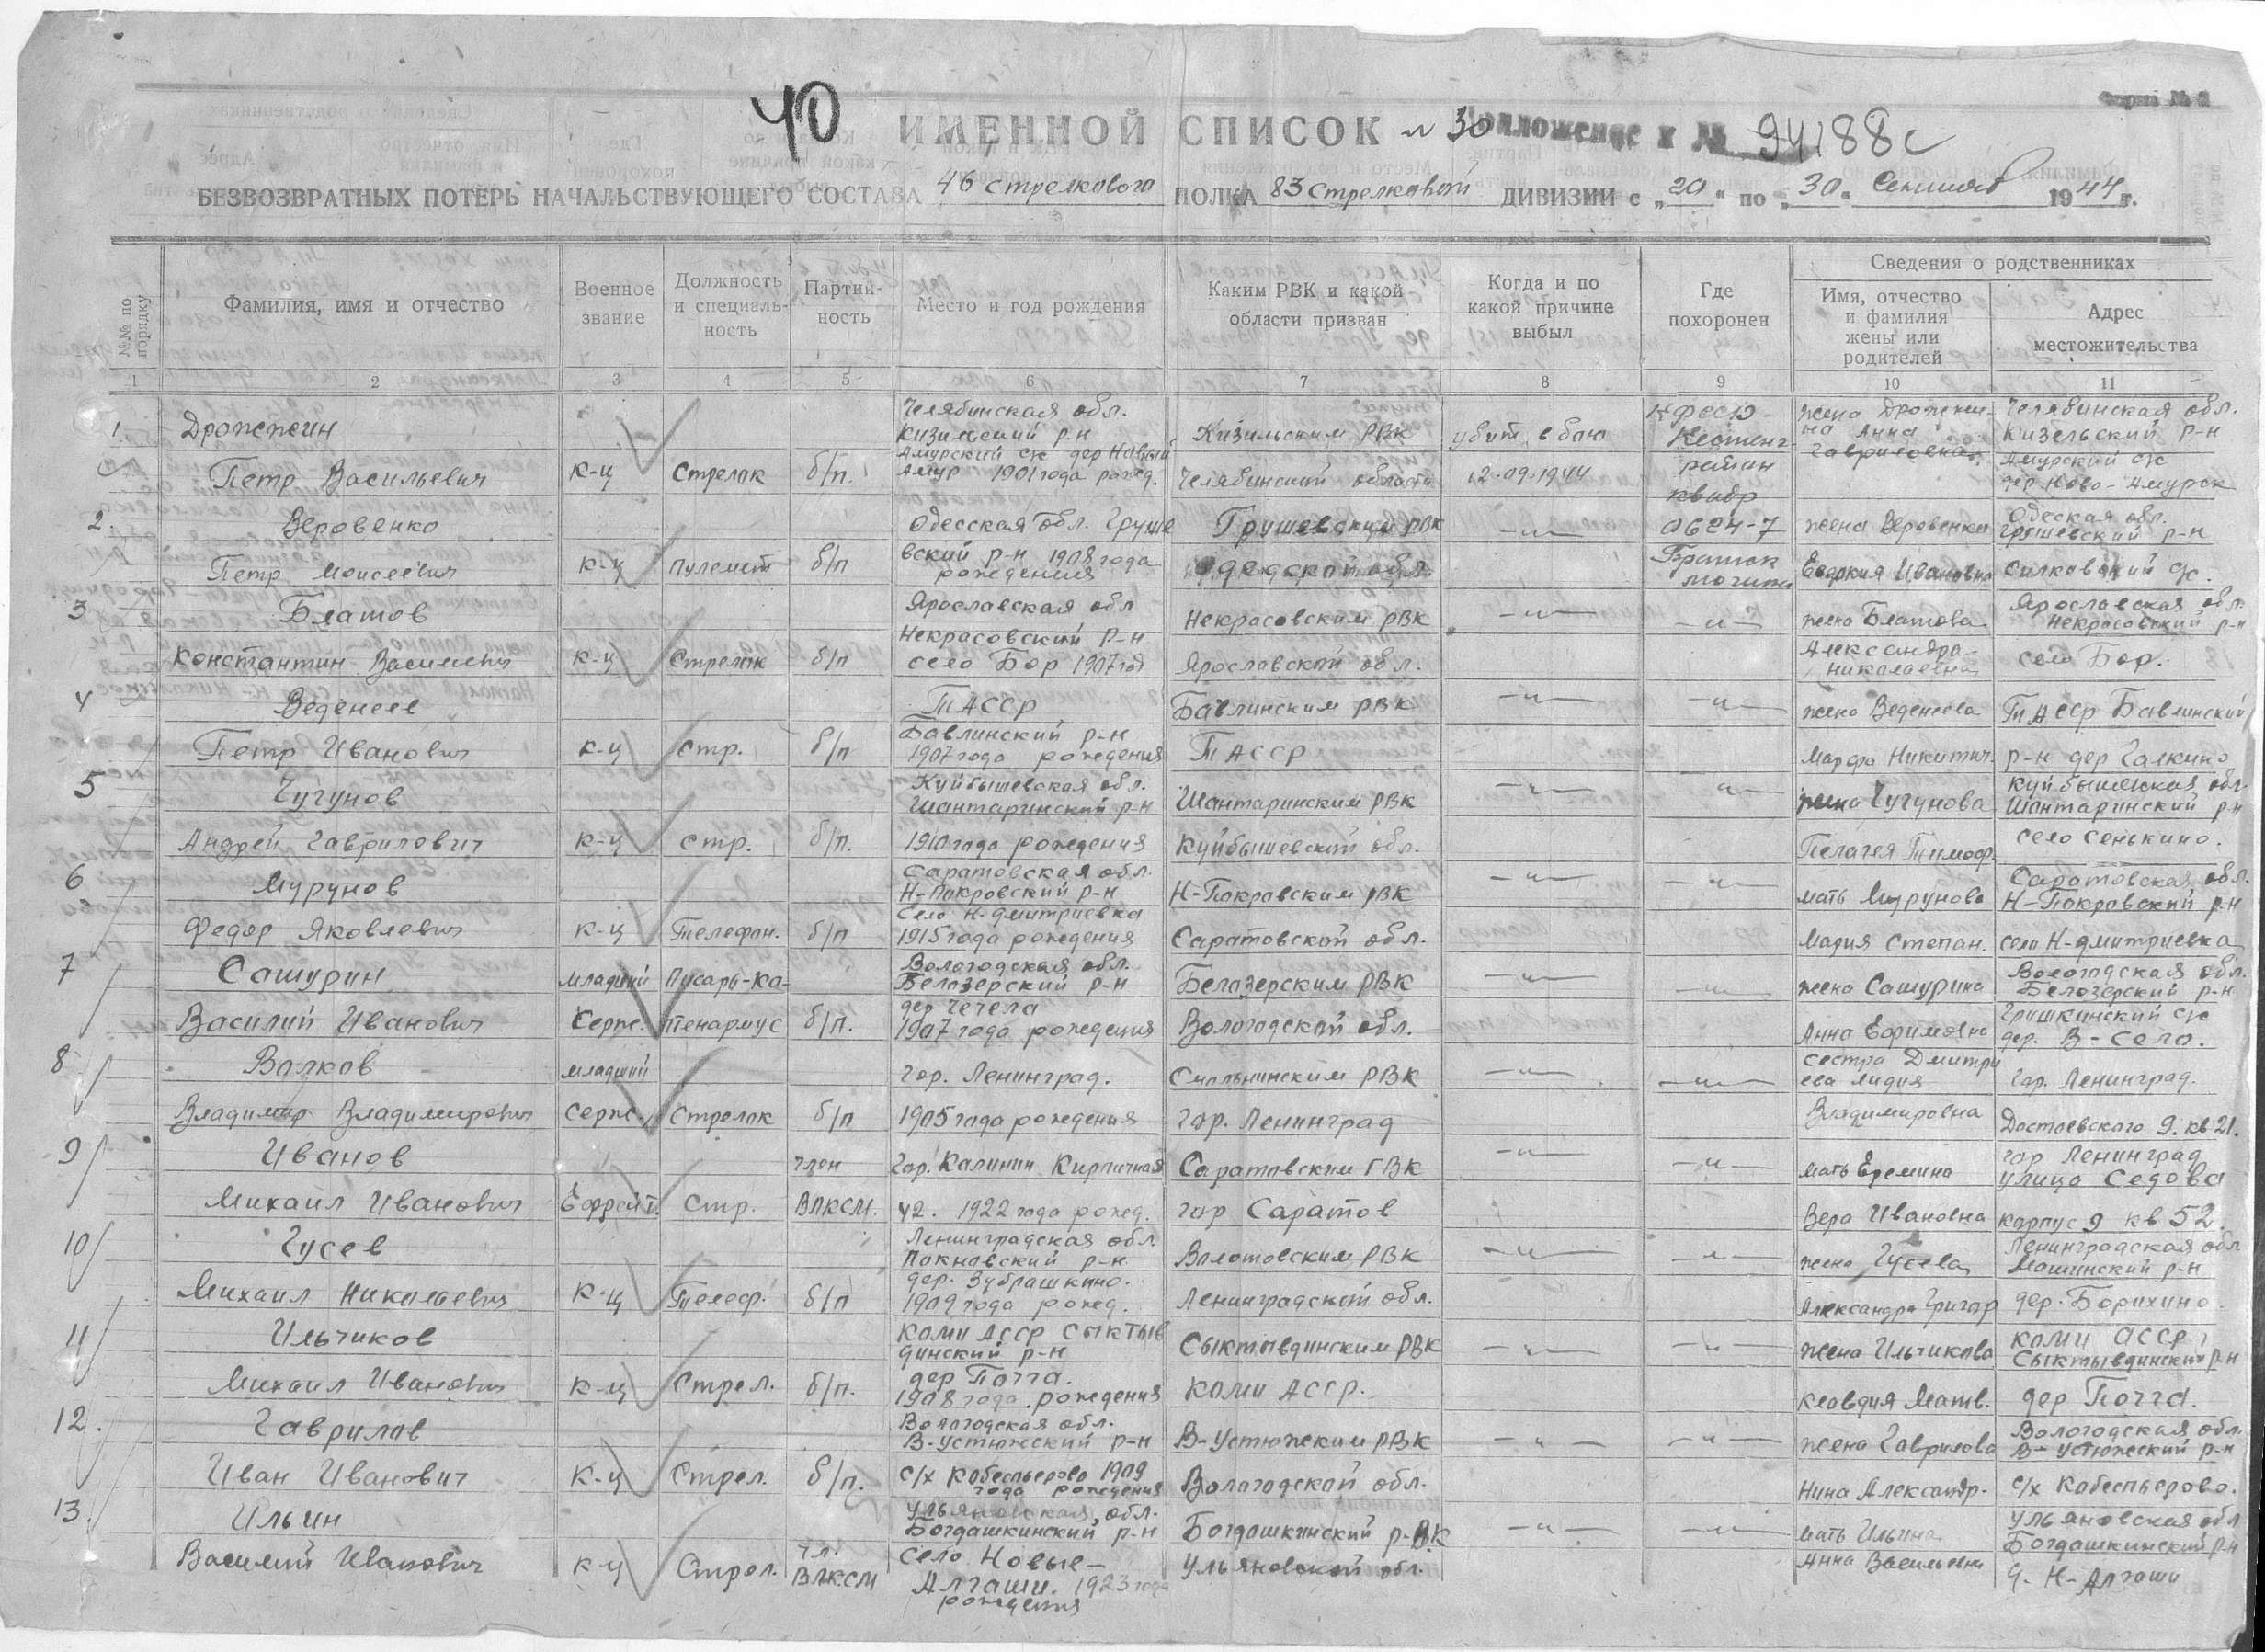 40 ИМЕННОЙ СПИСОК № 30 Приложение к № 94188с
Форма № 2
БЕЗВОЗВРАТНЫХ ПОТЕРЬ НАЧАЛЬСТВУЮЩЕГО СОСТАВА 46 стрелкового ПОЛКА 83 стрелковой ДИВИЗИИ с „20“ по „30“ Сентября 1944 г.
№№ по порядку
Фамилия, имя и отчество
Военное звание
Должность и специаль- ность
Партий- ность
Место и год рождения
Каким РВК и какой области призван
Когда и по какой причине выбыл
Где похоронен
Сведения о родственниках
Имя, отчество и фамилия жены или родителей
Адрес местожительства
1 2 3 4 5 6 7 8 9 10 11
1. Дрожжин
Петр Васильевич
к-ц
Стрелок
б/п.
Челябинская обл.
Кизильский р-н
Амурский с/с дер Новый
Амур 1901 года рожд.
Кизильским РВК
Челябинский области
убит в бою
12.09.1944
К ФССР
Кестенг-
район
квадр
0624-7
Братск
могила
жена Дрожжи-
на Анна
Гавриловна.
Челябинская обл.
Кизельский р-н
Амурский с/с
дер Ново-Амурск
2. Веровенко
Петр Моисеевич
к-ц
Пулемет
б/п
Одесская обл. Груше
вский р-н 1908 года
рождения
Грушевским РВК
Одесской обл.
—"—
жена Веровенко
Евдокия Ивановна
Одеская обл.
Грушевский р-н
с/с.
3 Блатов
Константин Васильевич
к-ц
Стрелок
б/п
Ярославская обл
Некрасовский р-н
село Бор 1907 год
Некрасовским РВК
Ярославской обл.
—"—
—"—
жена Блатова
Александра
Николаевна
Ярославская обл.
Некрасовский р-н
село Бор.
4 Веденеев
Петр Иванович
к-ц
стр.
б/п
ТАССР
Бавлинский р-н
1907 года рождения
Бавлинским РВК
ТАССР
—"—
—"—
жена Веденеева
Марфа Никитич.
ТАССР Бавлинский
р-н дер Галкино
5 Чугунов
Андрей Гаврилович
к-ц
стр.
б/п.
Куйбышевская обл.
Шантаринский р-н
1910 года рождения
Шантаринским РВК
Куйбышевской обл.
—"—
—"—
жена Чугунова
Пелагея Тимоф.
Куйбышевская обл.
Шантаринский р-н
село Сенькино.
6 Мурунов
Федор Яковлевич
к-ц
Телефон.
б/п
Саратовская обл.
Н-Покровский р-н
Село Н-Дмитриевка
1915 года рождения
Н-Покровским РВК
Саратовской обл.
—"—
—"—
мать Мурунова
Мария Степан.
Саратовская обл.
Н-Покровский р-н
село Н-Дмитриевка
7 Сашурин
Василий Иванович
младший
Серж.
Писарь-ка-
птенармус
б/п.
Вологодская обл.
Белозерский р-н
дер Чечела
1907 года рождения
Белозерским РВК
Вологодской обл.
—"—
—"—
жена Сашурина
Анна Ефимовна
Вологодская обл.
Белозерский р-н
Гришкинский с/с
дер. В-Село.
8 Волков
Владимир Владимирович
младший
Серж.
Стрелок
б/п
гор. Ленинград.
1905 года рождения
Смольнинским РВК
гор. Ленинград
—"—
—"—
сестра Дмитри
ева Лидия
Владимировна
гор. Ленинград.
Достоевского 9. кв 21.
9 Иванов
Михаил Иванович
Ефрейт.
Стр.
член
ВЛКСМ.
Гор. Калинин Кирпичная
42. 1922 года рожд.
Саратовским ГВК
гор Саратов
—"—
—"—
мать Еремина
Вера Ивановна
гор Ленинград
улица Седова
корпус 9 кв 52.
10 Гусев
Михаил Николаевич
к-ц
Телеф.
б/п
Ленинградская обл.
р-н
дер. Зубрашкино.
1909 года рожд.
Волотовским РВК
Ленинградской обл.
—"—
—"—
жена Гусева
Александра Григор
Ленинградская обл
Мошинский р-н
дер. Борихино.
11 Ильчиков
Михаил Иванович
к-ц
Стрел.
б/п.
Коми АССР Сыктыв
динский р-н
дер Почта.
1908 года рождения
Сыктывдинским РВК
Коми АССР.
—"—
—"—
жена Ильчикова
Клавдия Матв.
Коми АССР,
Сыктывдинский р-н
дер Почта.
12. Гаврилов
Иван Иванович
к-ц
Стрел.
б/п.
Вологодская обл.
В-Устюжский р-н
с/х Кобеспьерово 1909
года рождения
В-Устюжским РВК
Вологодской обл.
—"—
—"—
жена Гаврилова
Нина Александр.
Вологодская обл.
В-Устюжский р-н
с/х Кобеспьерово.
13. Ильин
Василий Иванович
к-ц
Стрел.
чл.
ВЛКСМ
Ульяновская обл.
Богдашкинский р-н
село Новые-
Алгаши. 1923 года
рождения
Богдашкинский р-ВК
Ульяновской обл.
—"—
—"—
мать Ильина
Анна Васильевна
Ульяновская обл
Богдашкинский р-н
д. Н-Алгаши